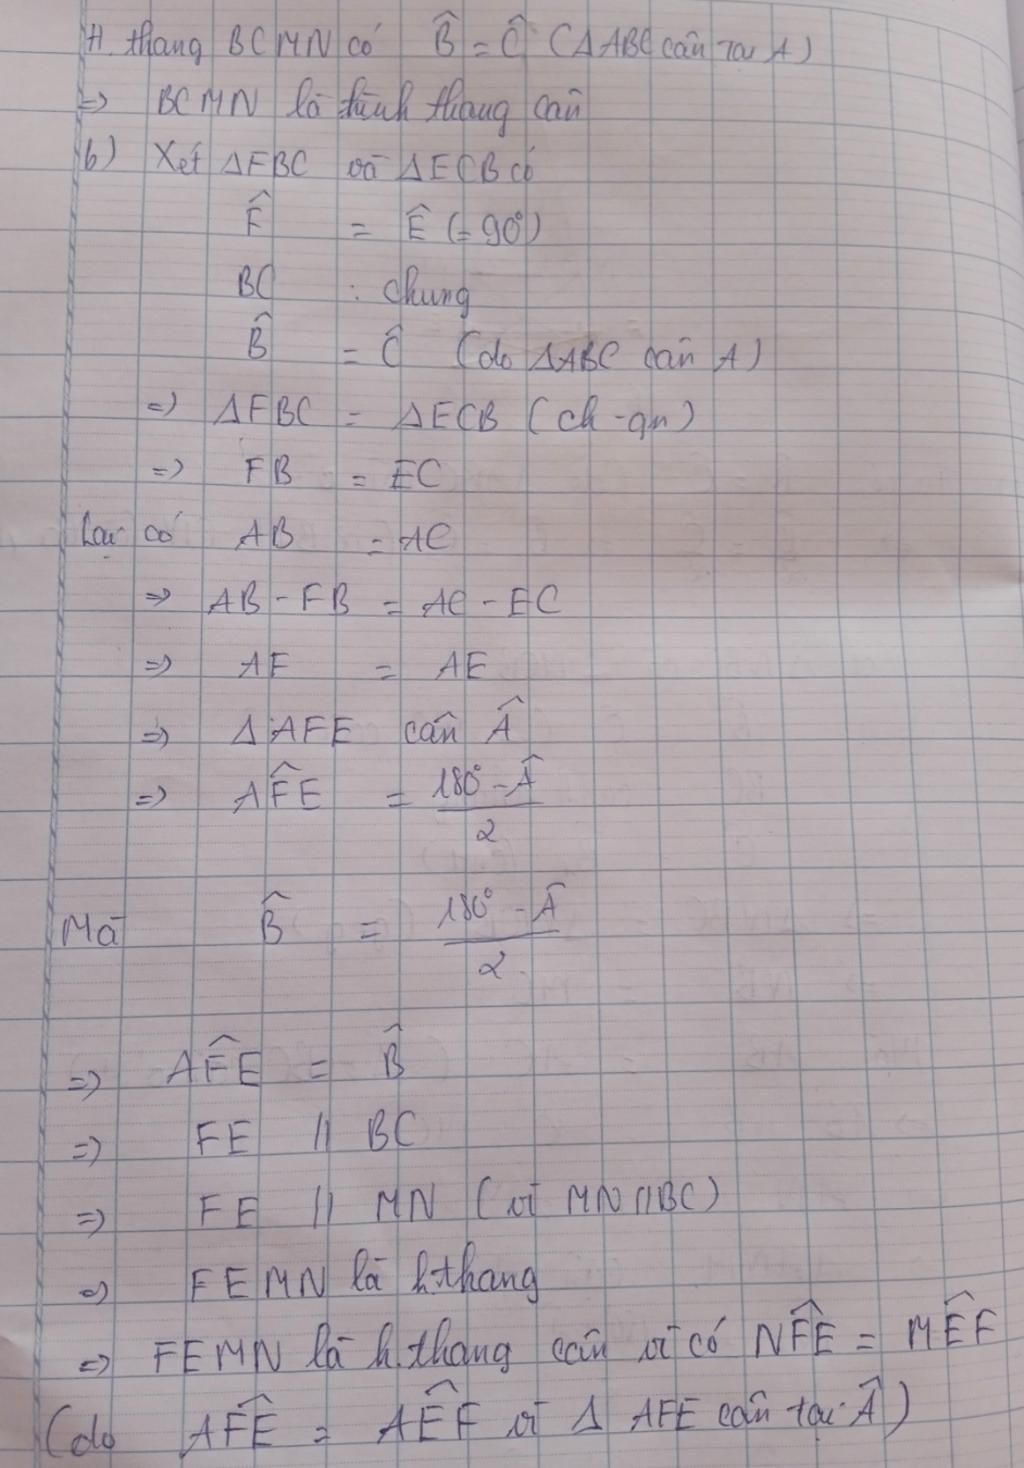 H. thang BCMN có B̂ = Ĉ (ΔABC cân tại A)
=> BCMN là hình thang cân
b) Xét ΔFBC và ΔECB có
F̂ = Ê (= 90°)
BC : chung
B̂ = Ĉ (do ΔABC cân A)
=> ΔFBC = ΔECB (ch-gn)
=> FB = EC
Lại có AB = AC
=> AB - FB = AC - EC
=> AF = AE
=> ΔAFE cân Â
=> AF̂E = (180° - Â)/2
Mà B̂ = (180° - Â)/2
=> AF̂E = B̂
=> FE // BC
=> FE // MN (vì MN//BC)
=> FEMN là h.thang
=> FEMN là h.thang cân vì có NF̂E = MÊF
(do AF̂E = AÊF vì Δ AFE cân tại Â)